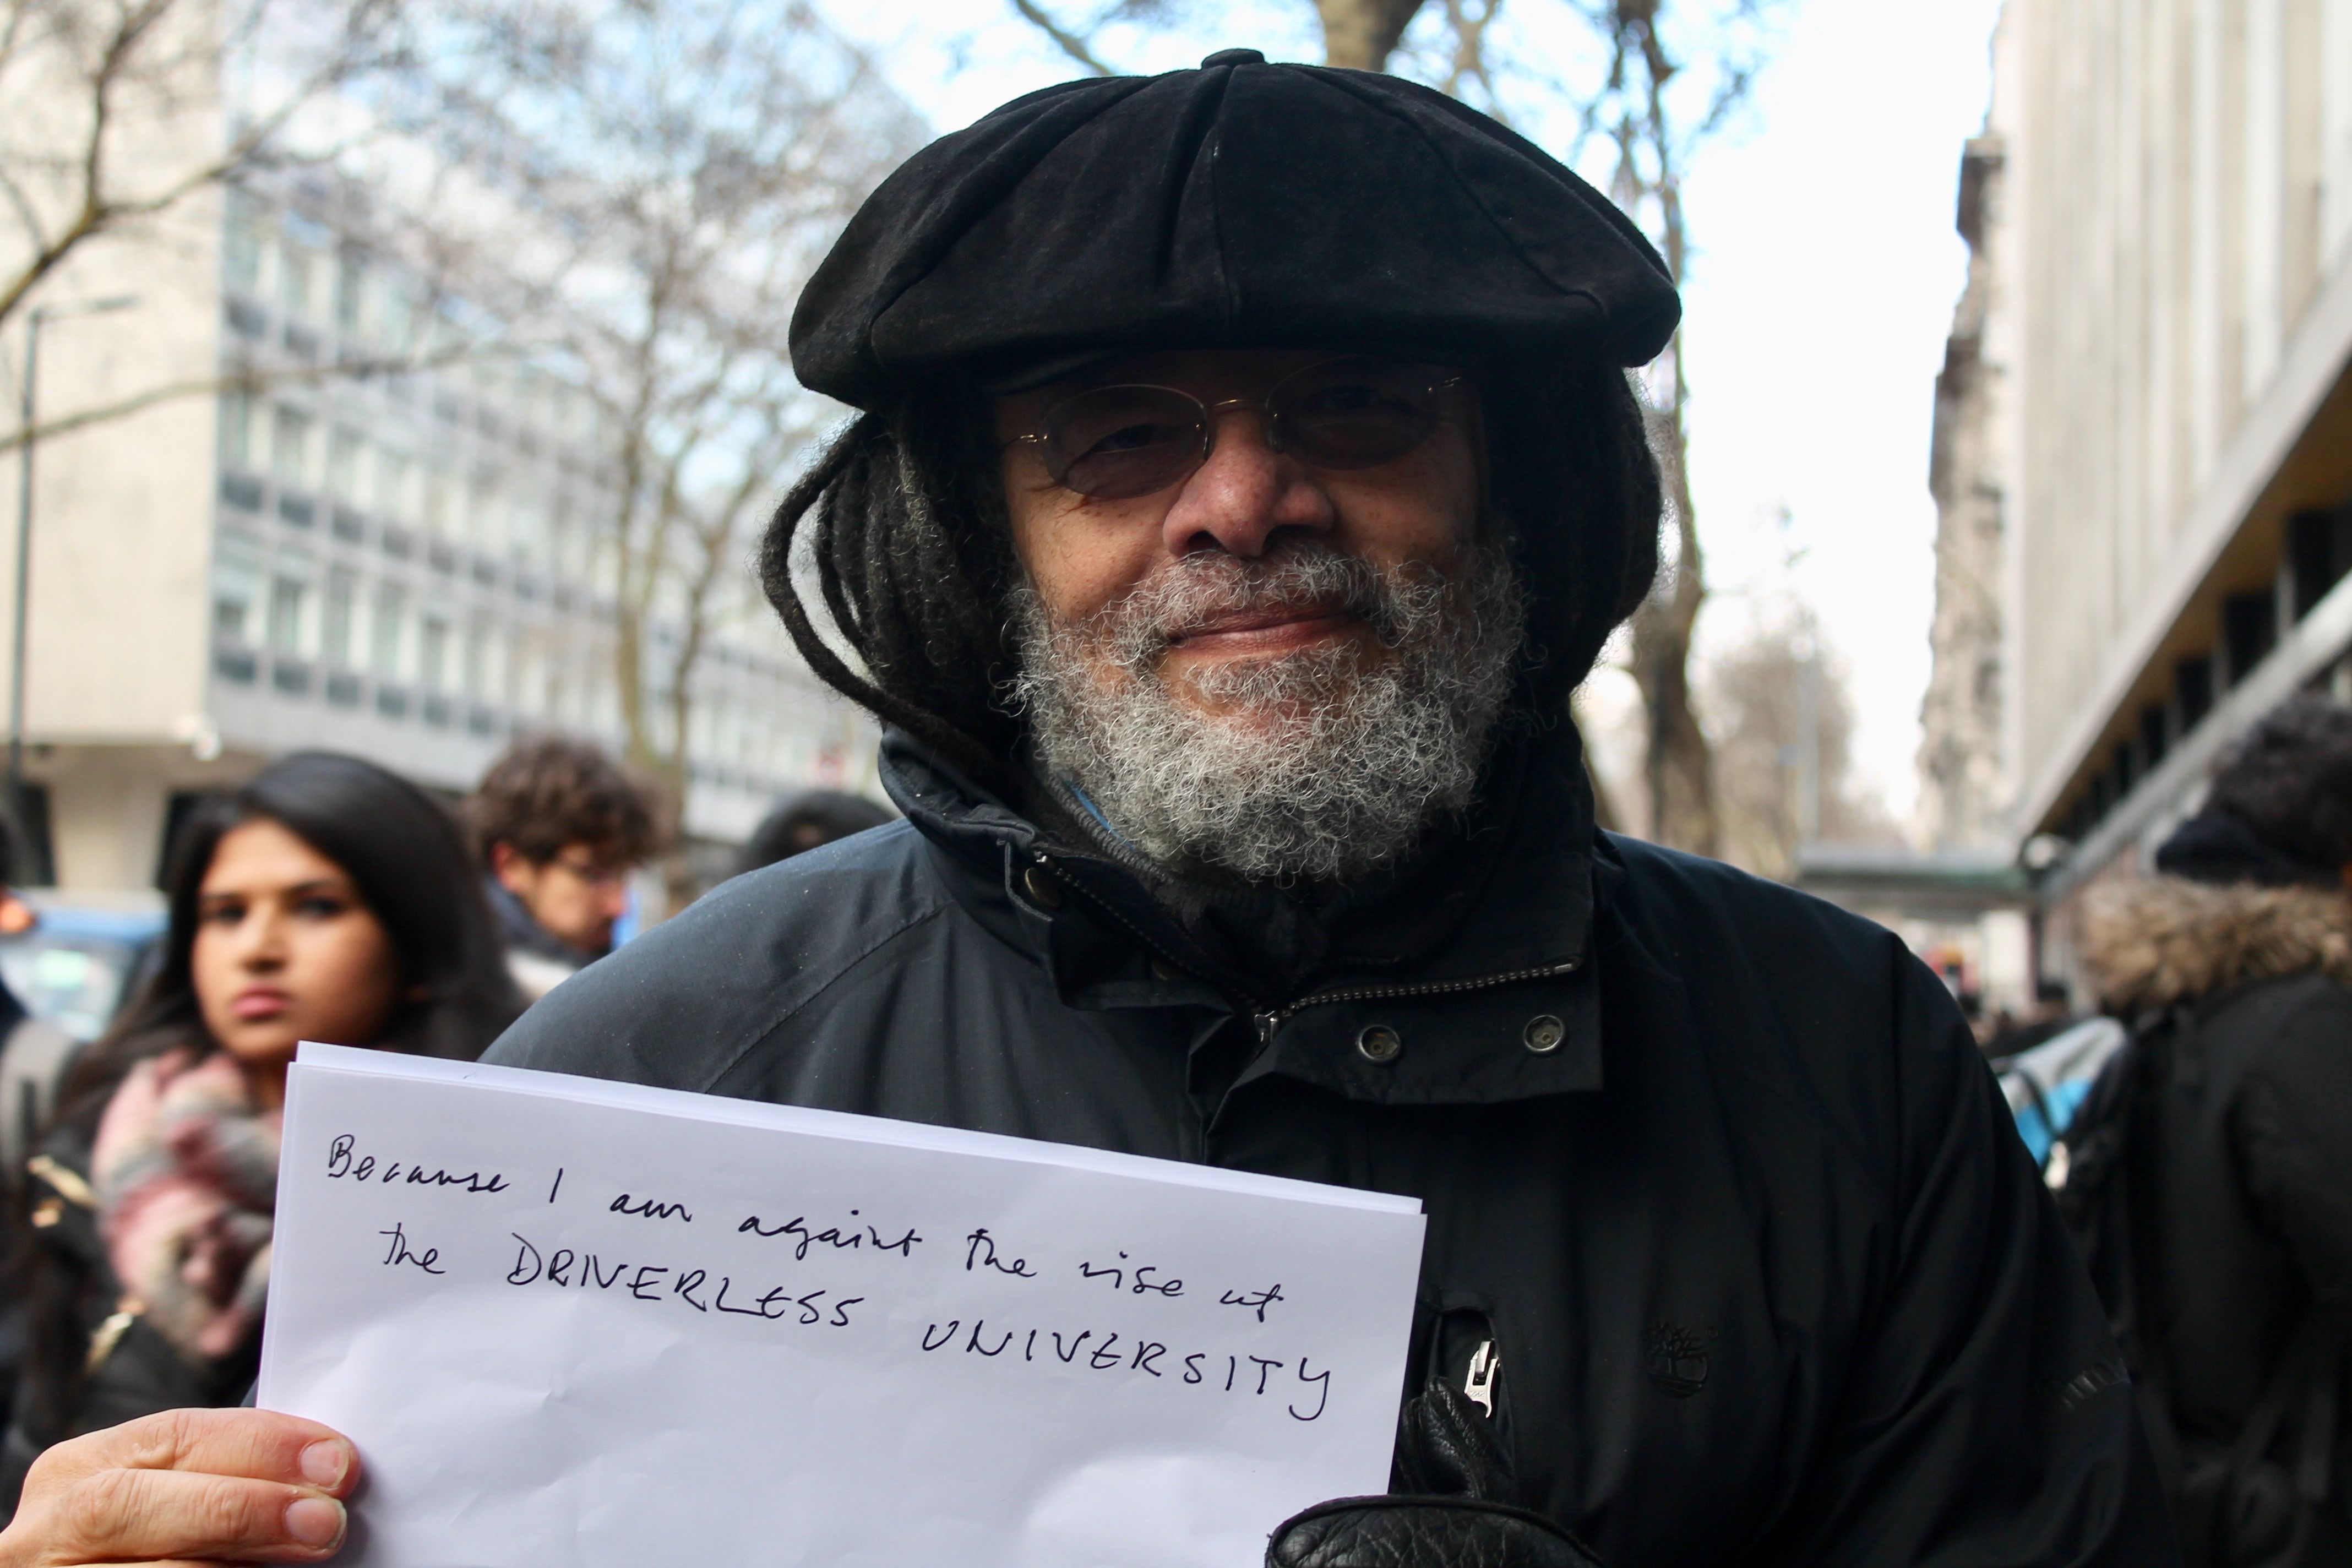 Because I am against the rise of
the DRIVERLESS UNIVERSITY